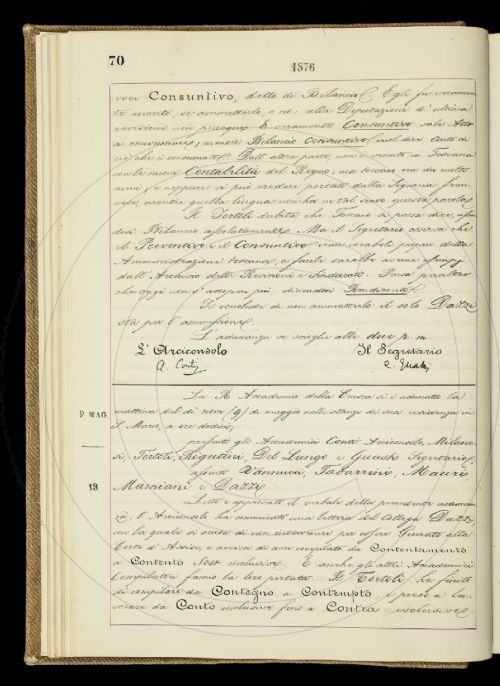 70
1876
voce Consuntivo, detto di Bilancio. E gli fu veramen
te incerto, se ammetterlo, o no: alla Deputazione d'ultima
revisione non pareva È veramente Consuntivo vale Atto
a consumare; mentre Bilancio Consuntivo vuol dire Conto di
ciò che è consumato. Dall'altra parte, non è venuto in Toscana
con la nuova Contabilità del Regno; ma toscana era da molti
anni, e neppure si può credere portata dalla Signoria fran
cese, perchè quella lingua non ha in tal senso questa parola.
Il Tortoli dubita che Toscano si possa dire,
dosi Bilancio assolutamente. Ma il Segretario avverte che
il Preventivo e il Consuntivo sono vocaboli propri della
Amministrazione toscana, e facile sarebbe averne esempj
dall'Archivio delle Revisioni e Sindacati. Pensa peraltro
che oggi non s'adopera più, dicendosi Rendiconti.
Si conclude di non ammetterlo: il solo Dazzi
sta per l'ammissione.
L'adunanza si scioglie alle due p. m.
L'Arciconsolo Il Segretario
A. Conti C. Guasti
9 MAG.
La R. Accademia della Crusca si è adunata la
mattina del dì nove (9) di maggio nelle stanze di sua residenza in
S. Marco, a ore dodici,
presenti gli Accademici Conti Arciconsolo, Milane-
si, Tortoli, Rigutini, Del Lungo e Guasti Segretario;
assenti Vannucci, Tabarrini, Mauri,
13
Mamiani e Dazzi.
Letto e approvato il verbale della precedente adunan
za, l'Arciconsolo ha comunicato una lettera del Collega Dazzi
con la quale si scusa di non intervenire per esser Giurato alla
Corte d'Assise, e avvisa di aver compilato da Contentamento
a Contento Sost. inclusive. E anche gli altri Accademici
Compilatori fanno la loro portata. Il Tortoli ha finito
di compilare da Contegno a Contempto, e preso a la-
vorare da Conto inclusive fino a Contra esclusive.